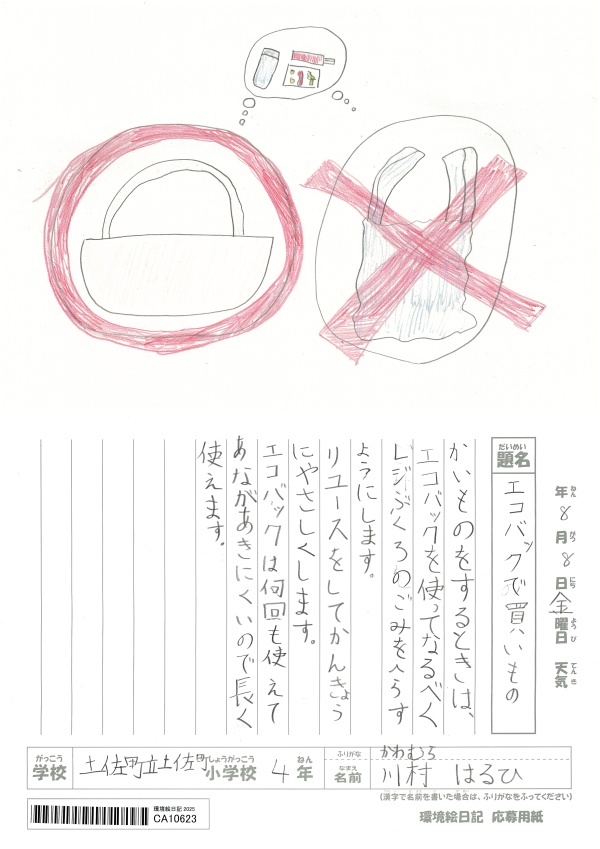 年 8 月 8 日 金 曜日 天気
ねん がつ にち ようび てんき
だいめい
題名
エコバックで買いもの
かいものをするときは、
エコバックを使ってなるべく
レジぶくろのごみをへらす
ようにします。
リユースをしてかんきょう
にやさしくします。
エコバックは何回も使えて
あながあきにくいので長く
使えます。
がっこう
学校
土佐町立土佐町
しょうがっこう
小学校
4
ねん
年
ふりがな
かわむら
なまえ
名前
川村 はるひ
(漢字で名前を書いた場合は、ふりがなをふってください)
環境絵日記 2025
CA10623
環境絵日記 応募用紙